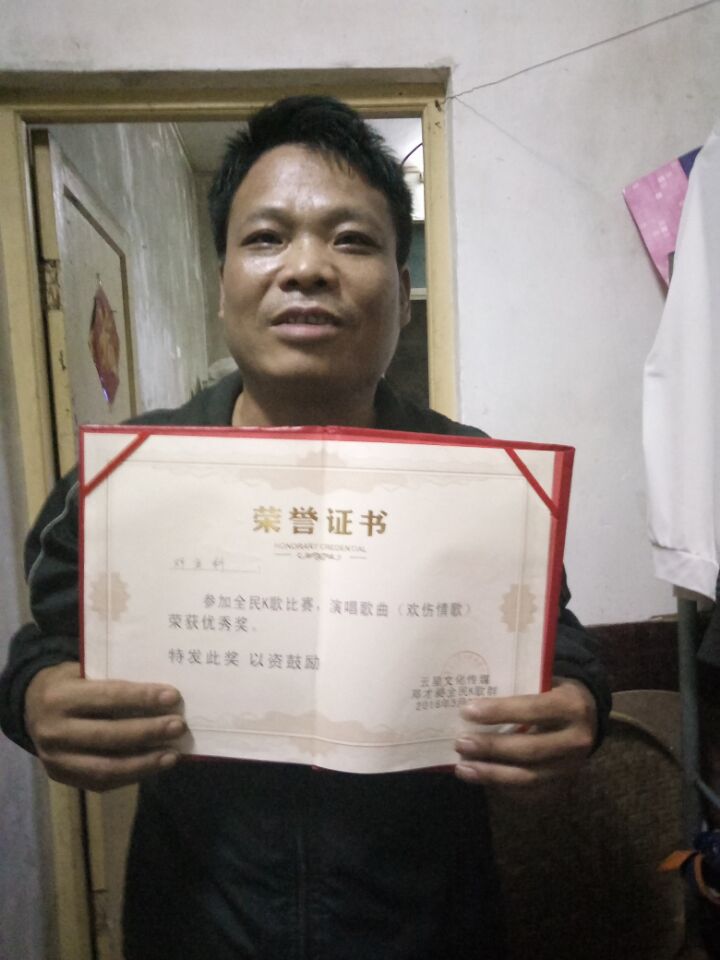 荣誉证书
HONORARY CREDENTIAL
参加全民K歌比赛，演唱歌曲（欢伤情歌）
荣获优秀奖。
特发此奖 以资鼓励
云星文化传媒
全民K歌群